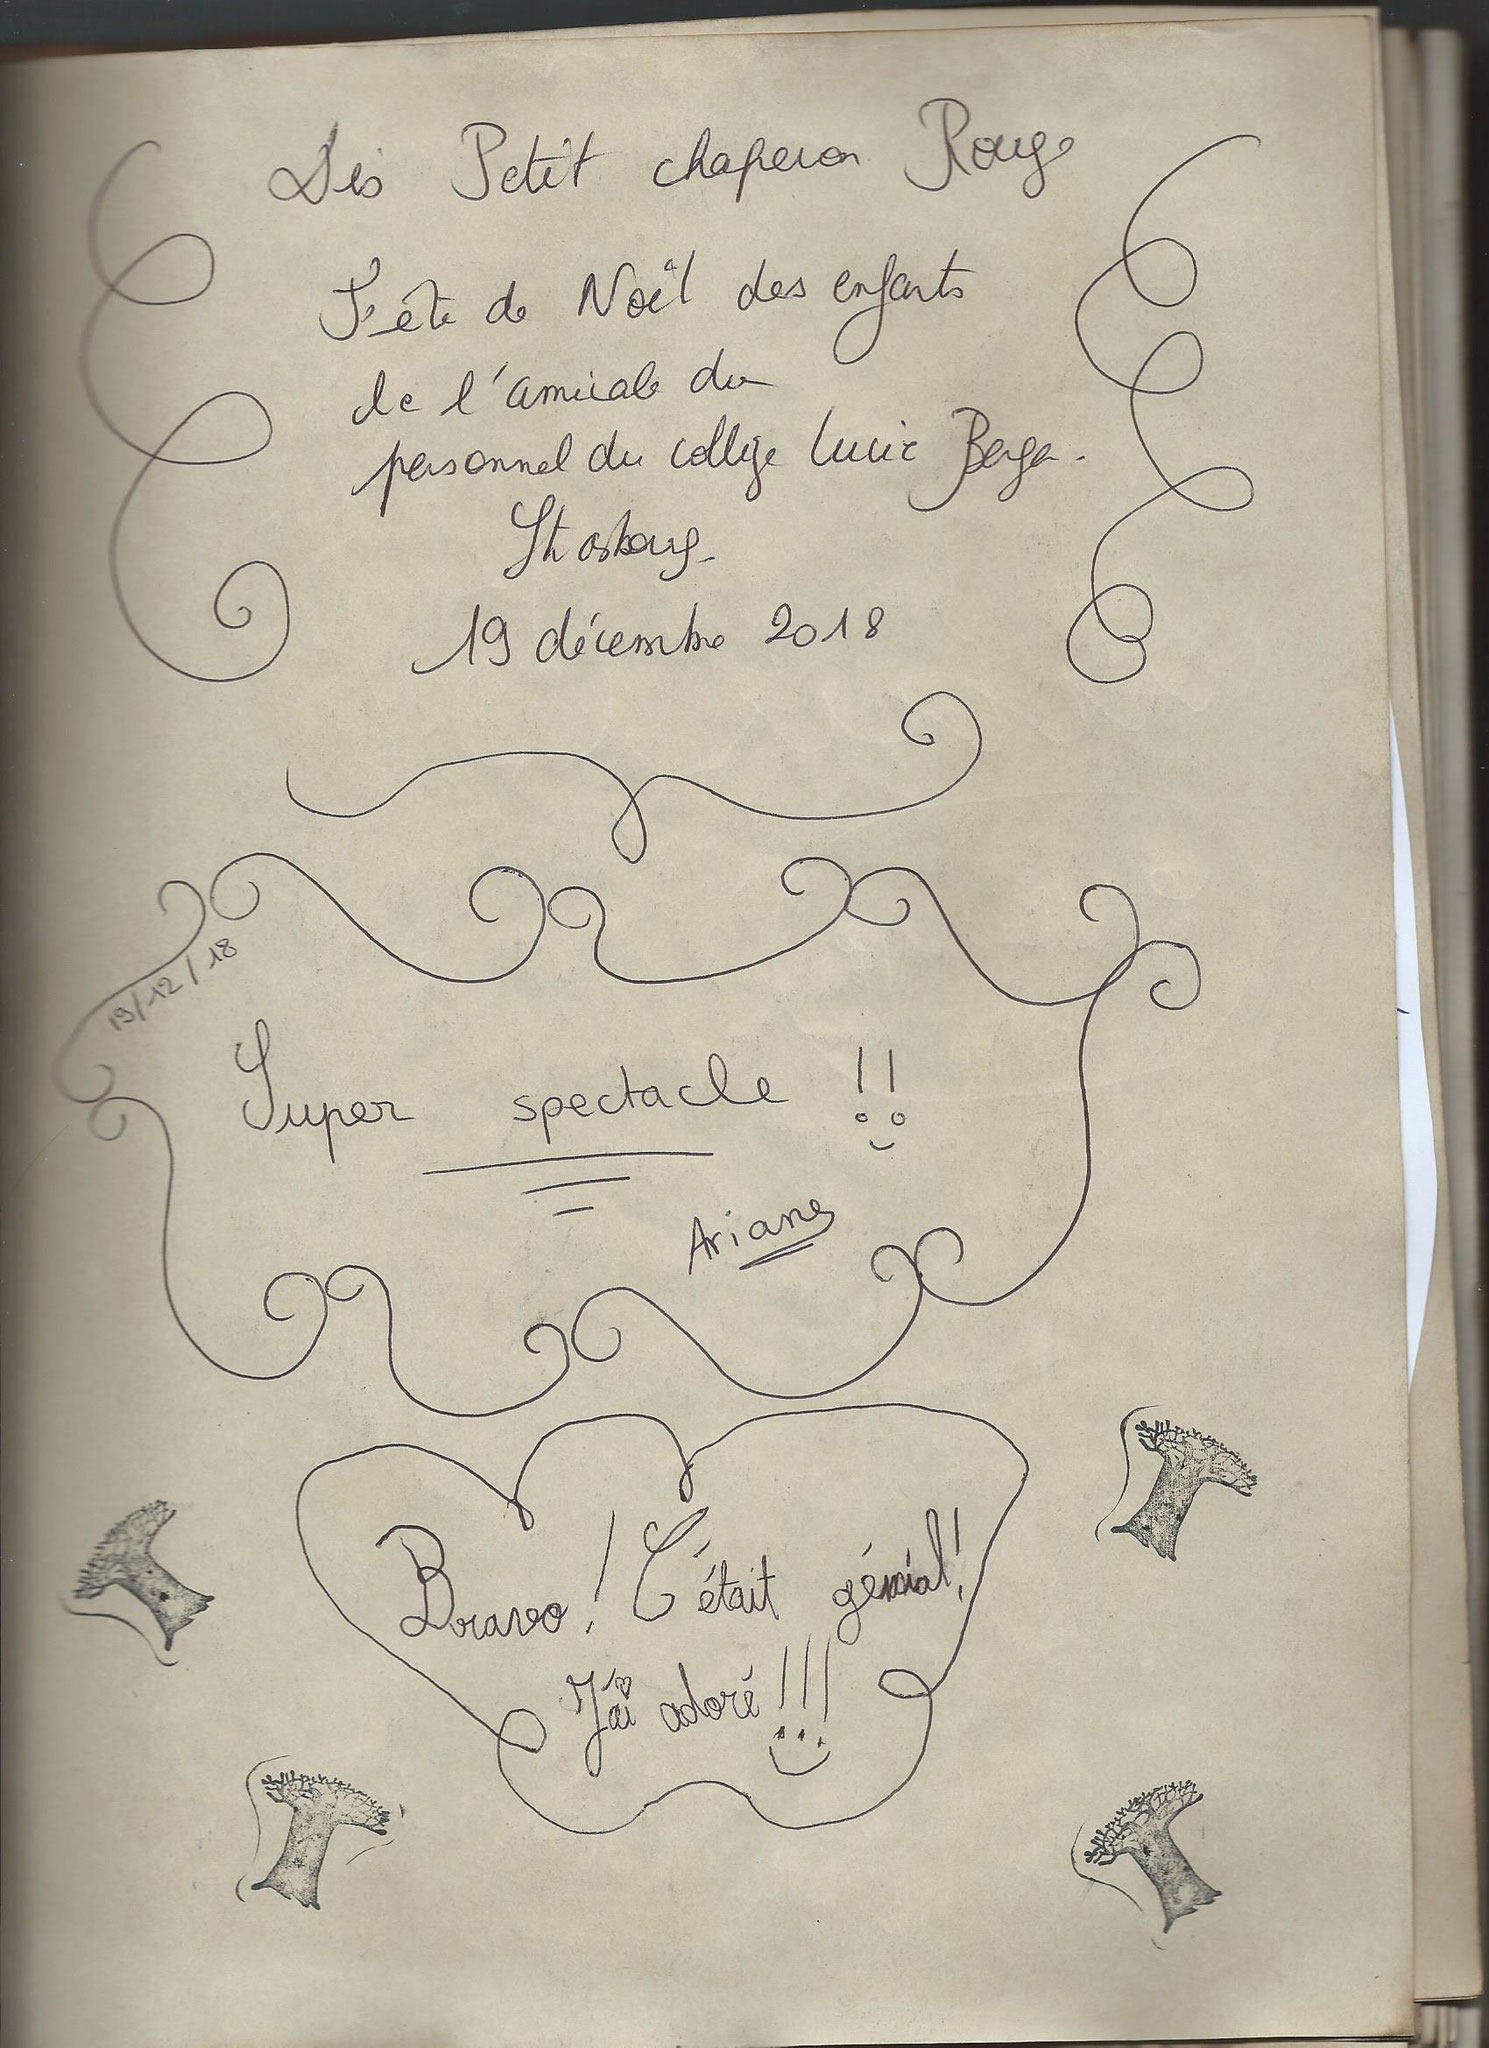 Dis Petit chaperon Rouge
Fête de Noël des enfants
de l'amicale du
personnel du collège Lucie Berger.
Strasbourg.
19 décembre 2018
19/12/18
Super spectacle !!
Ariane
Bravo! C'était génial!
J'ai adoré!!!